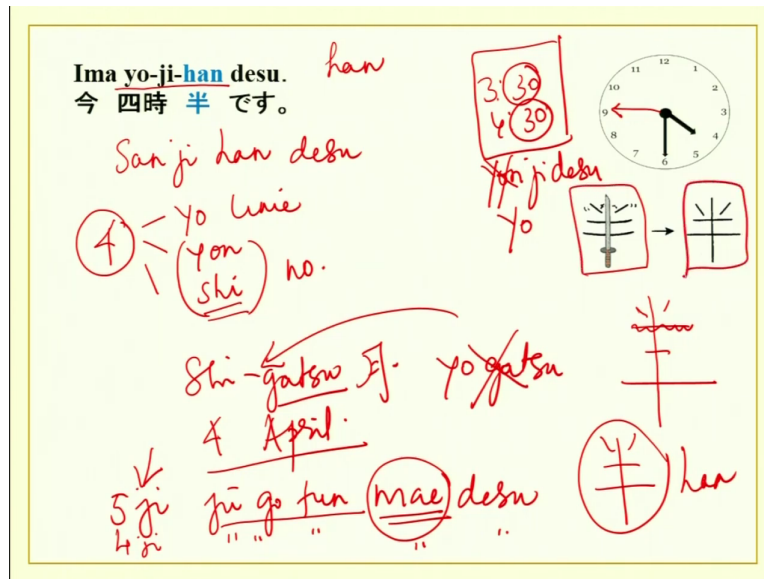 Ima yo-ji-han desu.
han
今 四時 半 です。
3:30
4:30
12
1
2
3
4
5
6
7
8
9
10
11
San ji han desu
Yon ji desu
Yo
4
yo time
yon
shi
no.
Shi-gatsu 月.
yo gatsu
4 April.
半 han
5 ji jū go fun mae desu
4 ji " " " " "